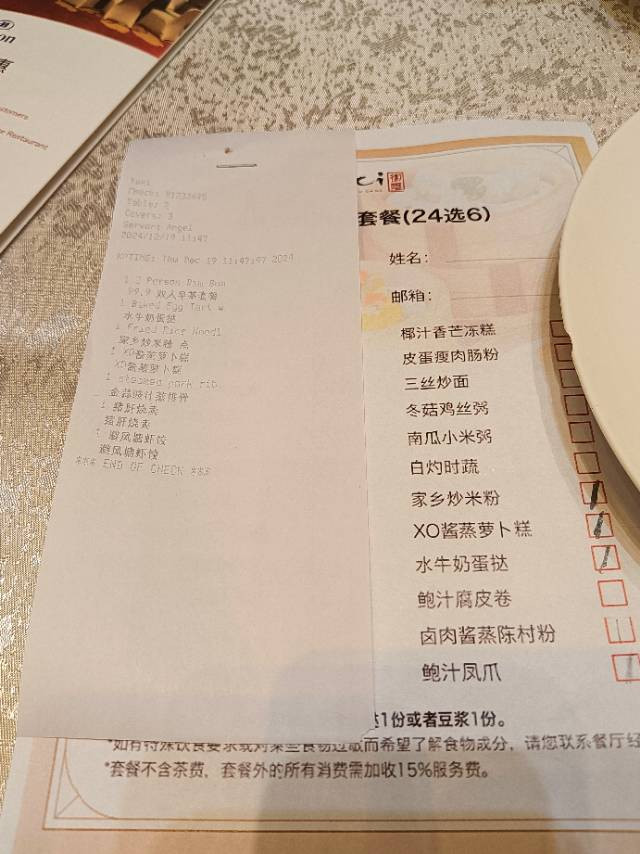 on
惠
Restaurant
Yuxi
Table: 2
Covers: 3
Server: Angel
2024/12/19 11:47
KPTIME: Thu Dec 19 11:47:07 2024
1 2 Person Dim Sum
99.9 双人早茶套餐
水牛奶蛋挞
1 Fried Rice Noodl
家乡炒米粉 点
1 XO酱蒸萝卜糕
XO酱蒸萝卜糕
1 steamed pork rib.
金蒜豉汁蒸排骨
1 猪肝烧卖
猪肝烧卖
1 避风塘虾饺
避风塘虾饺
*** END OF CHECK ***
套餐(24选6)
姓名：
邮箱：
椰汁香芒冻糕
皮蛋瘦肉肠粉
三丝炒面
冬菇鸡丝粥
南瓜小米粥
白灼时蔬
家乡炒米粉
XO酱蒸萝卜糕
水牛奶蛋挞
鲍汁腐皮卷
卤肉酱蒸陈村粉
鲍汁凤爪
1份或者豆浆1份。
*如有特殊饮食要求或对某些食物过敏而希望了解食物成分，请您联系餐厅经
*套餐不含茶费，套餐外的所有消费需加收15%服务费。